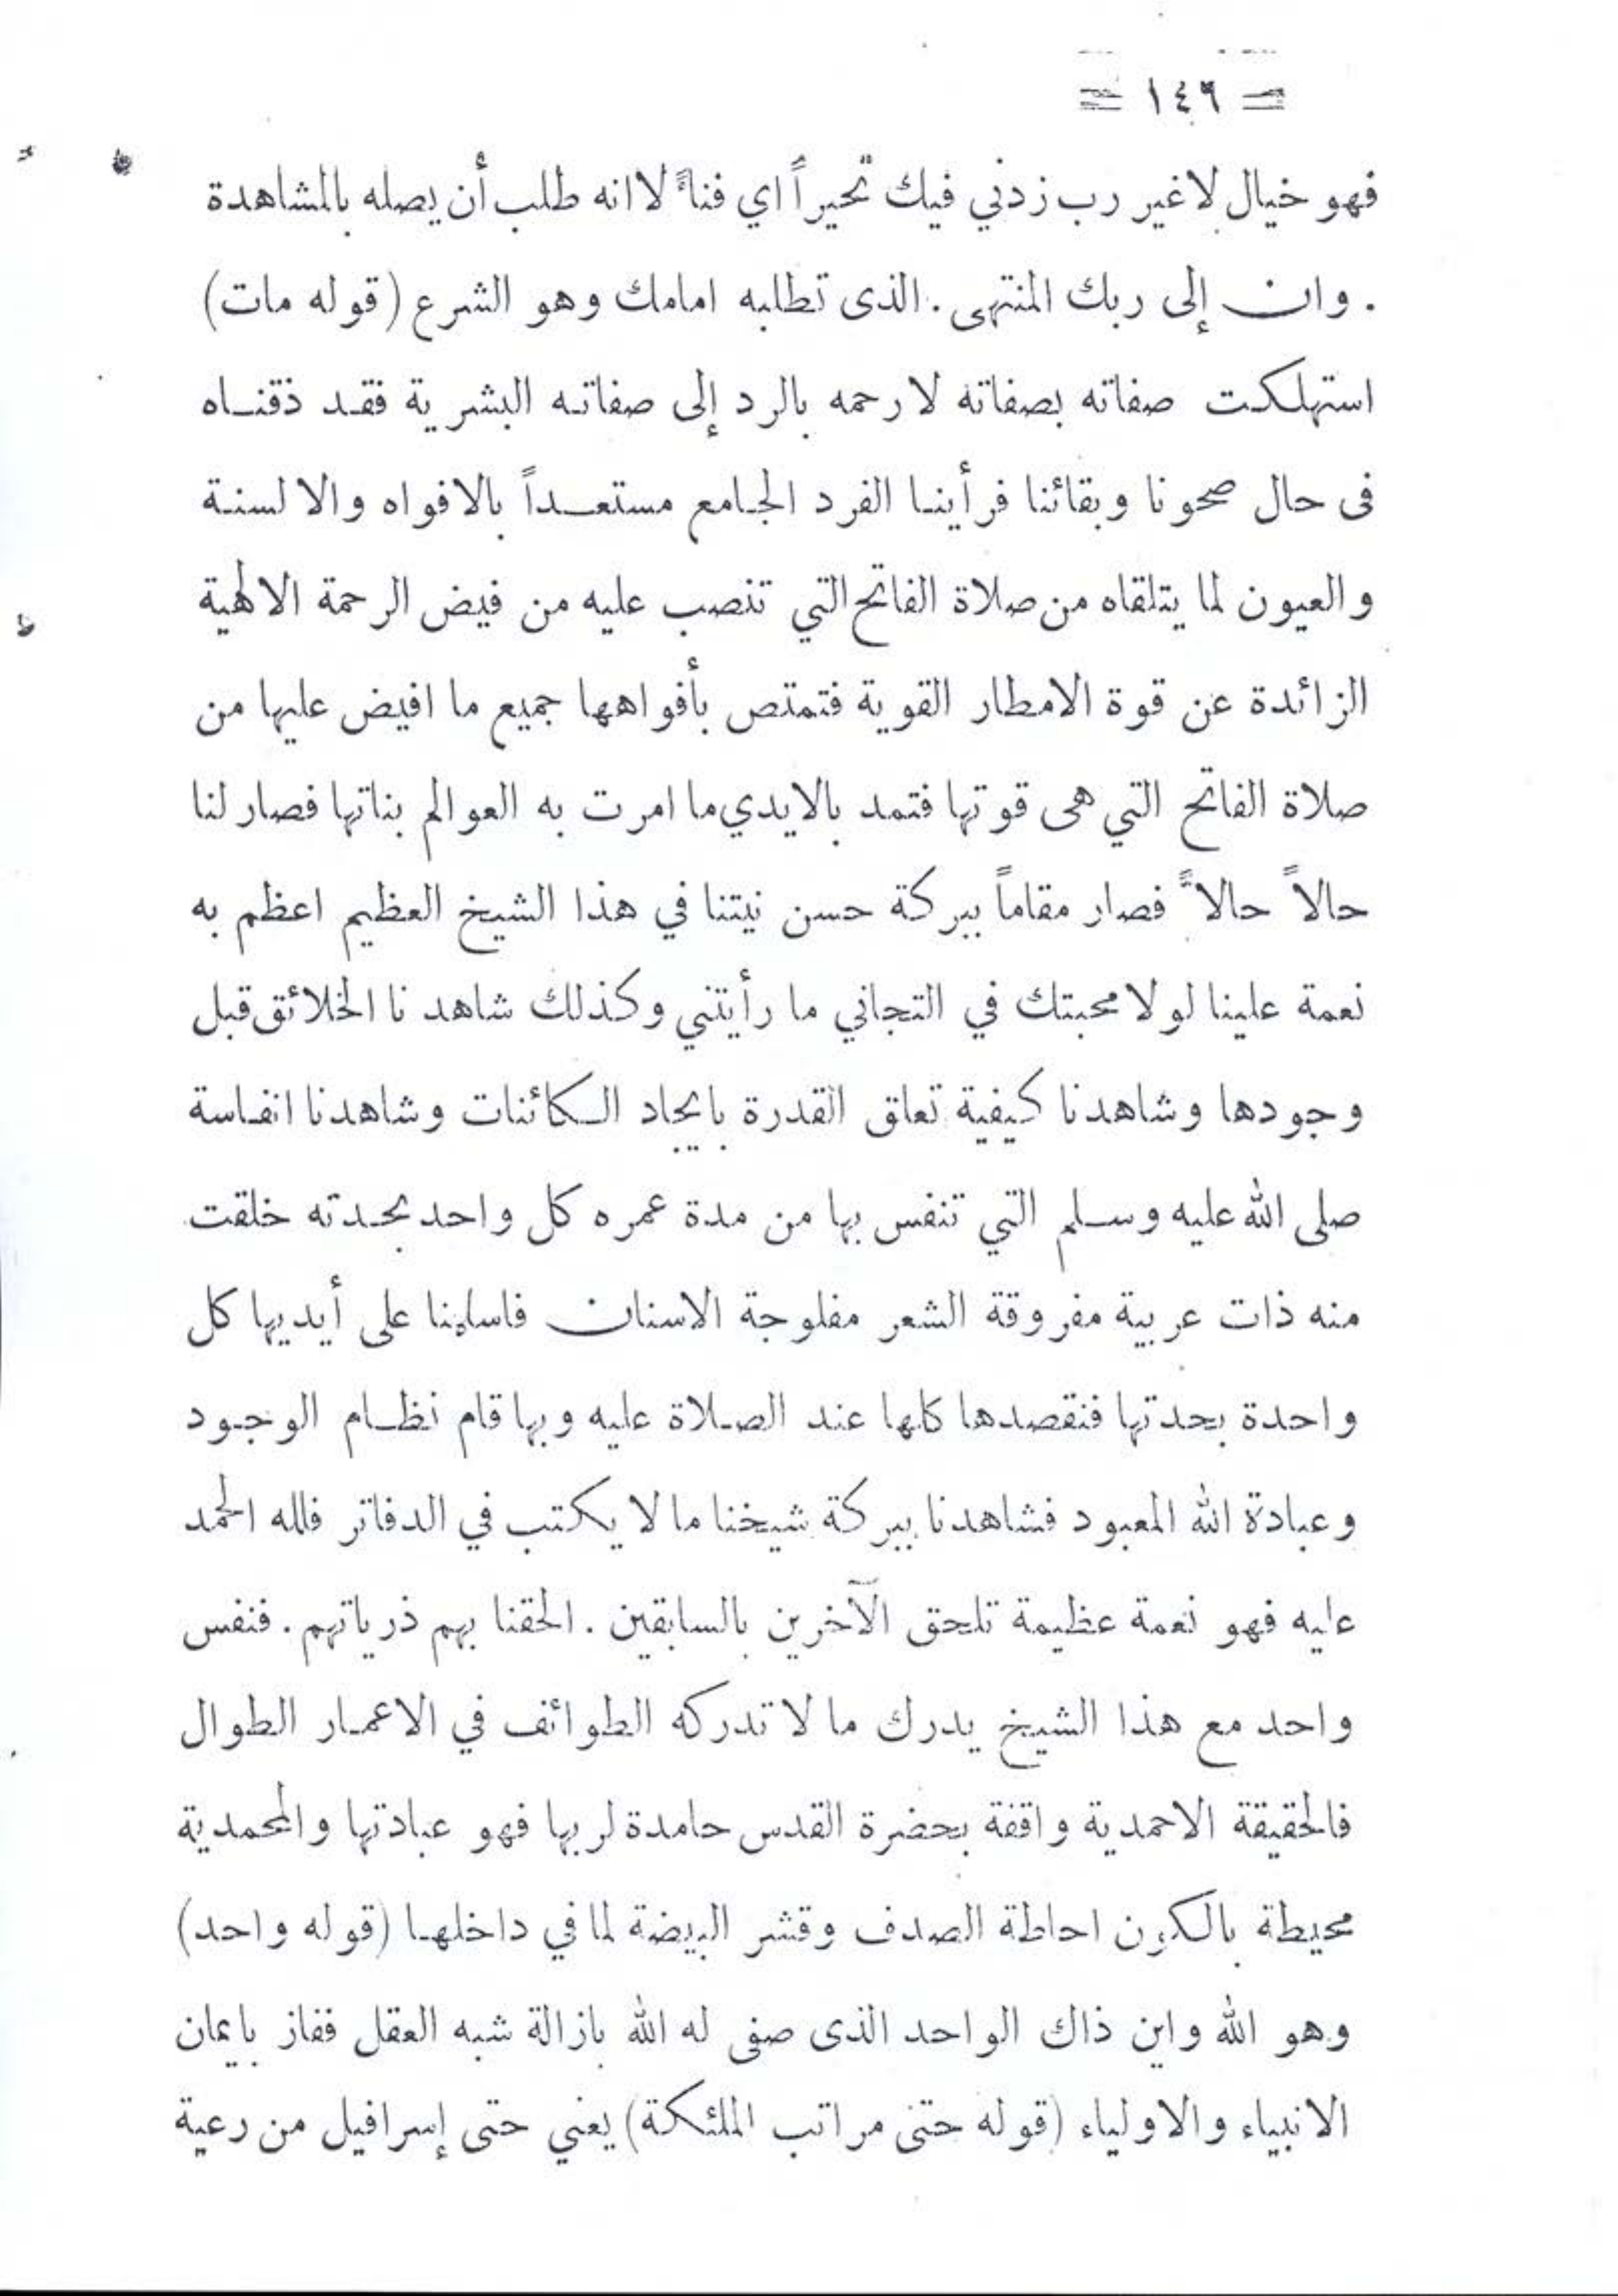 = ١٤٦ =
فهو خيال لاغير رب زدني فيك تحيراً اي فناءً لا انه طلب أن يصله بالمشاهدة
. وان إلى ربك المنتهى . الذى تطلبه امامك وهو الشرع (قوله مات)
استهلكت صفاته بصفاته لا رحمه بالرد إلى صفاته البشرية فقد ذقناه
فى حال صحونا وبقائنا فرأينا الفرد الجامع مستعداً بالافواه والالسنة
والعيون لما يتلقاه من صلاة الفاتح التي تنصب عليه من فيض الرحمة الالهية
الزائدة عن قوة الامطار القوية فتمتص بأفواهها جميع ما افيض عليها من
صلاة الفاتح التي هى قوتها فتمد بالايدي ما امرت به العوالم بناتها فصار لنا
حالاً حالاً فصار مقاماً ببركة حسن نيتنا في هذا الشيخ العظيم اعظم به
نعمة علينا لولا محبتك في التجاني ما رأيتني وكذلك شاهدنا الخلائق قبل
وجودها وشاهدنا كيفية تعلق القدرة بايجاد الكائنات وشاهدنا انفاسة
صلى الله عليه وسلم التي تنفس بها من مدة عمره كل واحد بحدته خلقت
منه ذات عربية مفروقة الشعر مفلوجة الاسنان فاسلمنا على أيديها كل
واحدة بحدتها فنقصدها كلها عند الصلاة عليه وبها قام نظام الوجود
وعبادة الله المعبود فشاهدنا ببركة شيخنا ما لا يكتب في الدفاتر فلله الحمد
عليه فهو نعمة عظيمة تلحق الآخرين بالسابقين . الحقنا بهم ذرياتهم . فنفس
واحد مع هذا الشيخ يدرك ما لا تدركه الطوائف في الاعمار الطوال
فالحقيقة الاحمدية واقفة بحضرة القدس حامدة لربها فهو عبادتها والمحمدية
محيطة بالكون احاطة الصدف وقشر البيضة لما في داخلها (قوله واحد)
وهو الله واين ذاك الواحد الذى صفى له الله بازالة شبه العقل ففاز بايمان
الانبياء والاولياء (قوله حتى مراتب الملئكة) يعني حتى إسرافيل من رعية